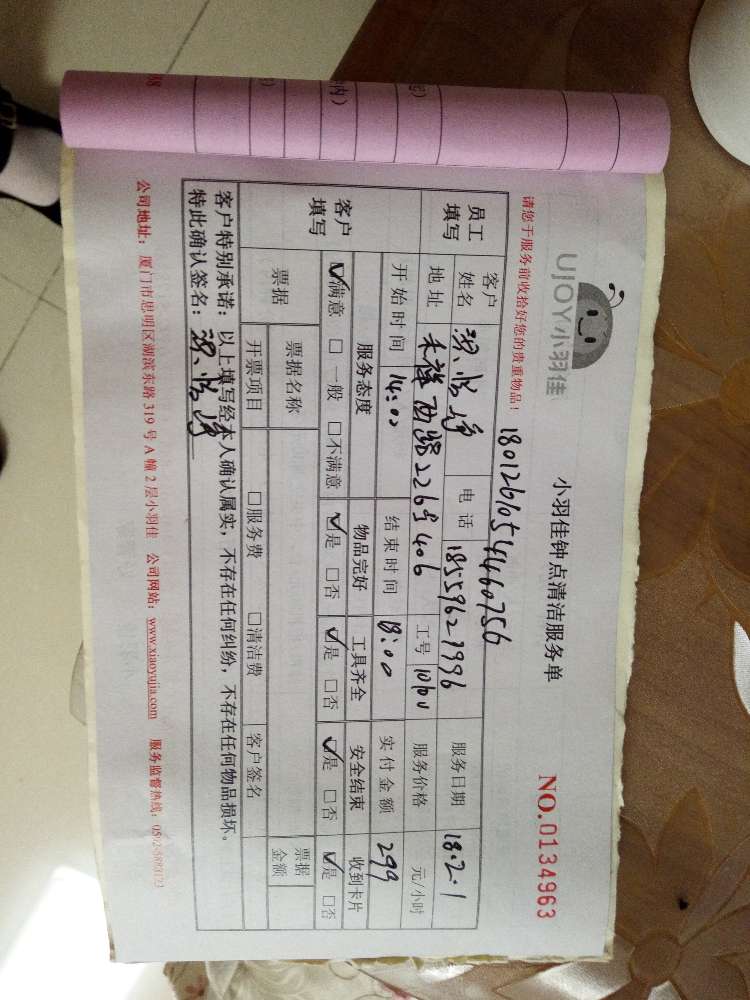 UJOY小羽佳
小羽佳钟点清洁服务单
NO.0134963
请您于服务前收拾好您的贵重物品!
1801261054460756
员工填写
客户姓名
电话
18559621996
服务日期
18.2.1
地址
禾祥西路226号406
工号
服务价格
元/小时
开始时间
14:00
结束时间
18:00
实付金额
299
客户填写
服务态度
物品完好
工具齐全
安全结束
收到卡片
☑满意 □一般 □不满意
☑是 □否
☑是 □否
☑是 □否
☑是 □否
票据
票据名称
票据金额
开票项目
□服务费 □清洁费
客户签名
客户特别承诺:以上填写经本人确认属实,不存在任何纠纷,不存在任何物品损坏。
特此确认签名:
公司地址:厦门市思明区湖滨东路319号A幢2层小羽佳 公司网站:www.xiaoyujia.com 服务监督热线: